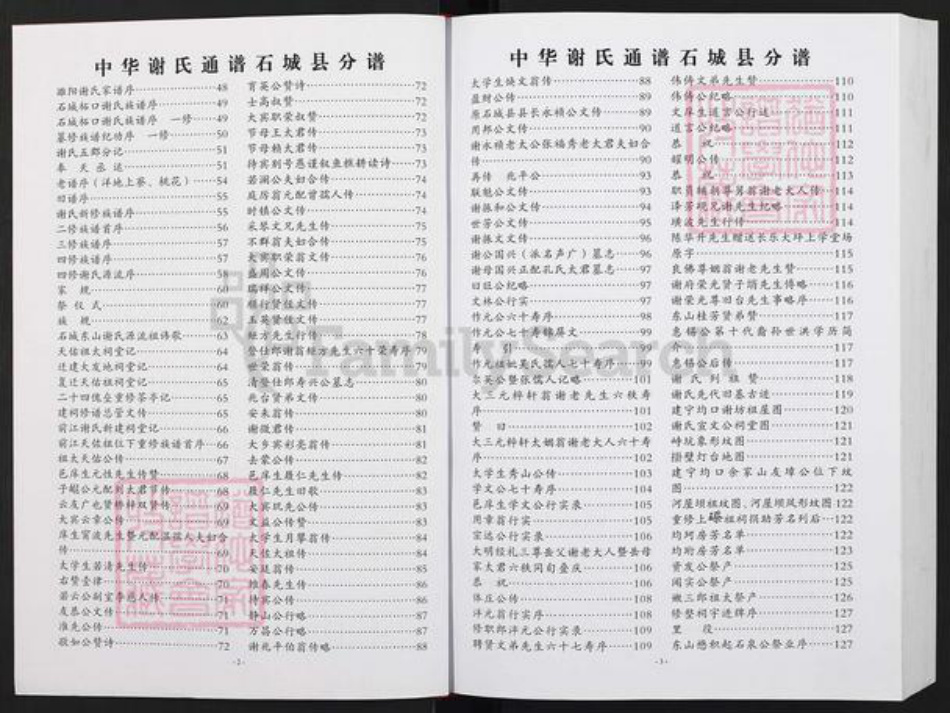 中华谢氏通谱石城县分谱
睢阳谢氏家谱序……48
石城柘口谢氏族谱序……49
石城柘口谢氏族谱序 一修……49
纂修族谱纪功序 一修……50
谢氏五郡分记……51
奉天丞运……51
老谱序（洋地上寮、桃花）……54
旧谱序……55
谢氏新修族谱序……55
二修族谱首序……56
三修族谱序……57
四修族谱序……57
四修谢氏源流序……58
家规……60
祭仪式……60
族规……62
石城东山谢氏源流祖诗歌……63
天佑祖大祠堂记……64
迁建大发地祠堂记……64
复迁天佑祖祠堂记……65
二十四傀垒重修茶亭记……65
建祠修谱总管文传……65
前江谢氏新建祠堂记……66
前江天佐祖位下重修族谱首序……66
祖太天佑公传……67
邑庠生元性先生传赞……68
子崐公元配刘太君节传……68
云友广也贤桥梓双赞传……69
大宾云章公传……69
庠生宵波先生暨元配温孺人夫妇合
传……69
太学生若清先生传……70
右赞壹律……70
碧云公副室李恩人传……71
友恭公文传……71
淮先公传……71
敬如公赞诗……72
育英公赞诗……72
士高叔赞……72
大宾职荣叔赞……72
节母王太君传……73
节母赖太君传……73
待宾别号愚谨叙鱼樵耕读诗……73
若澜公夫妇合传……74
庭厉翁元配曾孺人传……74
时镇公文传……74
采琴文兄先生传……75
不群翁夫妇合传……75
大宾职荣翁文传……76
盛周公文传……76
瑞祥公文传……77
顺行贤任文传……77
玉英贤任文传……77
经方先生行传……78
登仕郎谢翁经方先生六十荣寿序……79
世荣翁传……79
清登仕郎寿兴公墓志……80
兆台贤弟文传……80
安来翁传……80
谢徵君传……81
大乡宾彩亮翁传……81
去蒙公传……82
邑庠生履仁先生传……82
履仁先生旧歌……83
大宾玑先公传……83
文益公传赞……83
太学生月攀翁传……84
天位太祖传……84
安廷翁传……85
维春先生传……86
待宾公传……86
静山公行略……87
万昌公行略……87
谢兆平伯翁传略……88
·2·
中华谢氏通谱石城县分谱
太学生焕文翁传……88
益财公传……89
原石城县县长永祯公文传……89
周邦公文传……90
谢永祯老太公张福秀老太君夫妇合
传……90
再传 兆平公……93
联魁公文传……93
谢振和公文传……94
世芳公文传……95
谢振文文传……96
谢公国兴（派名声广）墓志……96
谢母国兴正配孔氏太君墓志……97
日旺公纪略……97
文林公行实……97
作元公六十寿序……98
作元公七十寿锦屏文……99
小引……99
作元祖妣吴氏孺人七十寿序……99
尔英公暨张儒人记略……101
大三元梓轩翁谢老先生六秩寿
序……101
赞曰……102
大三元梓轩太姻翁谢老大人六十寿
序……102
太学生秀山公传……103
学文公七十寿序……104
邑庠生学文公行实录……105
周章翁行实……105
宣远公行实录……106
大明经礼三尊岳父谢老大人暨岳母
家太君六秩同旬叠庆……106
恭祝……106
体庄公传……108
泮元翁行实序……108
修职郎泮元公行实录……109
聘贤文弟先生六十七寿序……109
伟俦文弟先生赞……110
伟俦公纪略……110
文庠生道言公行述……111
道言公纪略……111
恭祝……112
耀明公传……112
恭祝……113
职员辅朝尊舅翁谢老大人传……114
泽芳砚兄谢先生纪略……114
璜波先生行传……114
陈华升先生赠送长乐大坪上学堂场
原字……115
良佛尊姻翁谢老先生赞……115
谢府荣光贤子婿先生傅略……116
谢荣光尊旧台先生事略序……116
东山桂芳贤弟赞……117
惠锡公第十代裔孙世洪学历简
介……117
惠锡公后传……117
谢氏列祖赞……118
谢氏先代旧基古迹……119
建宁均口谢坊祖屋图……120
谢氏宣文公祠堂图……121
峙坑象形坟图……121
掛壁灯台地图……121
建宁均口余家山友璋公位下坟
图……122
河屋坝祖坟图、河屋坝凤形坟图……122
重修上磜祖祠捐助芳名列后……122
均坷房芳名单……122
均珩房芳名单……123
资发公祭产……125
闻实公祭产……125
嫩三郎祖太祭产……126
修整祠宇进牌序……127
里役……127
东山懋积起石泉公祭业序……127
·3·